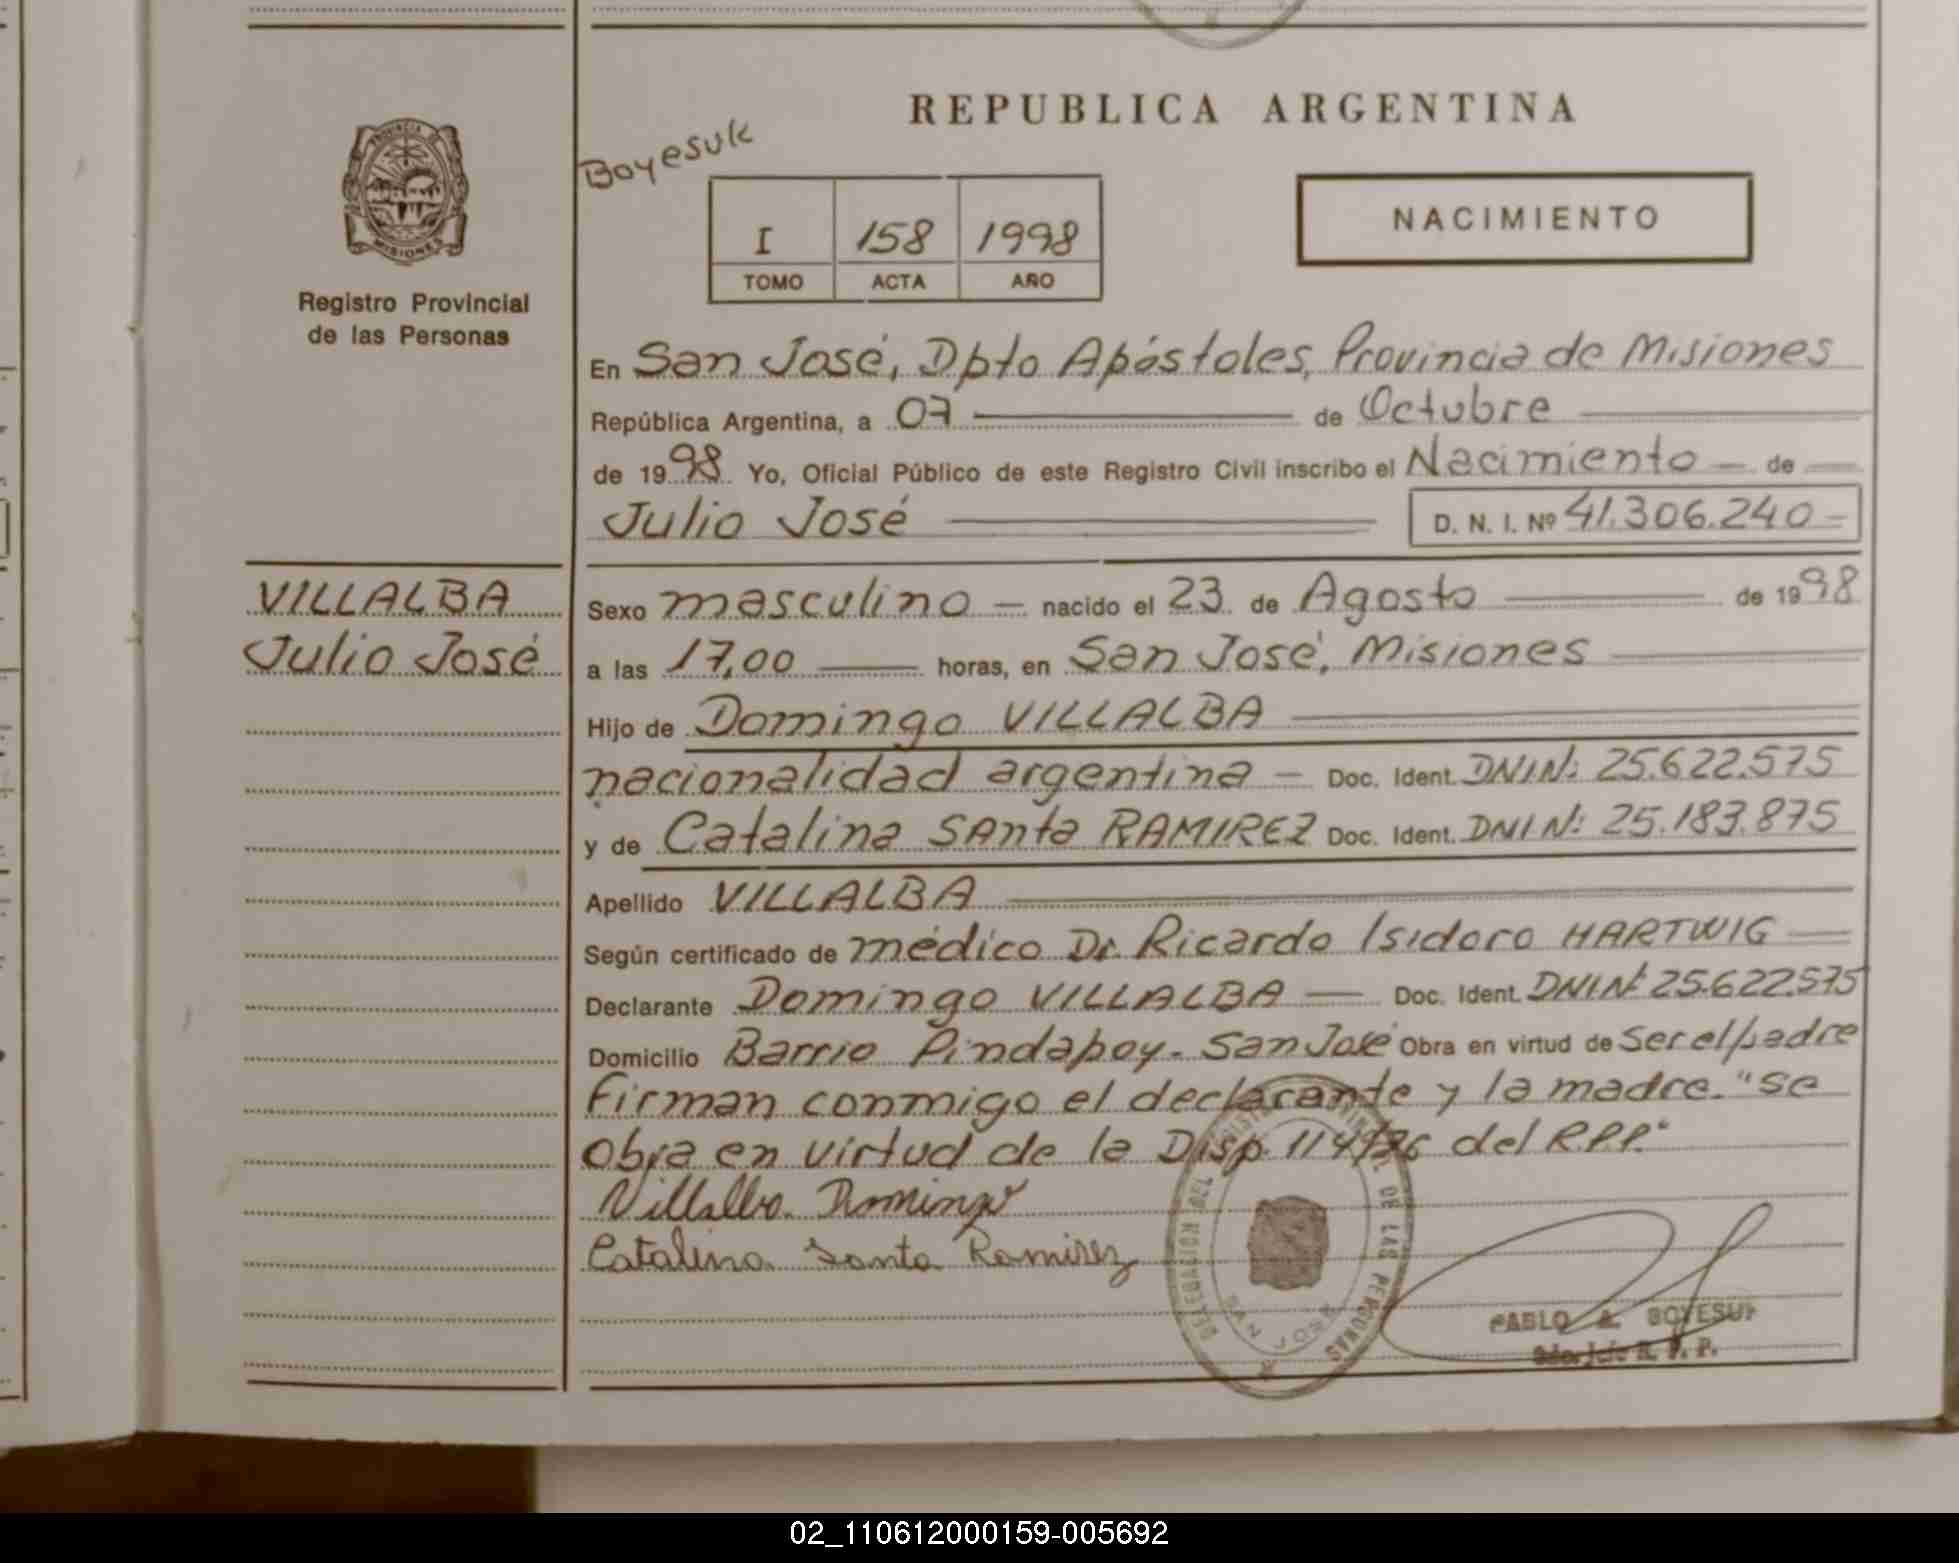 REPUBLICA ARGENTINA
Boyesuk
PROVINCIA DE
MISIONES
Registro Provincial
de las Personas
I 158 1998
TOMO ACTA AÑO
NACIMIENTO
En San José, Dpto Apóstoles, Provincia de Misiones
República Argentina, a 07 de Octubre
de 1998 Yo, Oficial Público de este Registro Civil inscribo el Nacimiento de
Julio José D. N. I. Nº 41.306.240
VILLALBA
Julio José
Sexo masculino nacido el 23 de Agosto de 1998
a las 17,00 horas, en San José, Misiones
Hijo de Domingo VILLALBA
nacionalidad argentina Doc. Ident. DNI N: 25.622.575
y de Catalina SAnta RAMIREZ Doc. Ident. DNI N: 25.183.875
Apellido VILLALBA
Según certificado de médico Dr. Ricardo Isidoro HARTWIG
Declarante Domingo VILLALBA Doc. Ident. DNI N: 25.622.575
Domicilio Barrio Pindapoy - San José Obra en virtud de ser el padre
Firman conmigo el declarante y la madre. "Se
obra en virtud de la Disp. del R.P.P."
Villalba Domingo
Catalina Santa Ramirez
DELEGACION DEL DE LAS PERSONAS
SAN JOSE
PABLO A. BOYESUK
R. P. P.
02_110612000159-005692